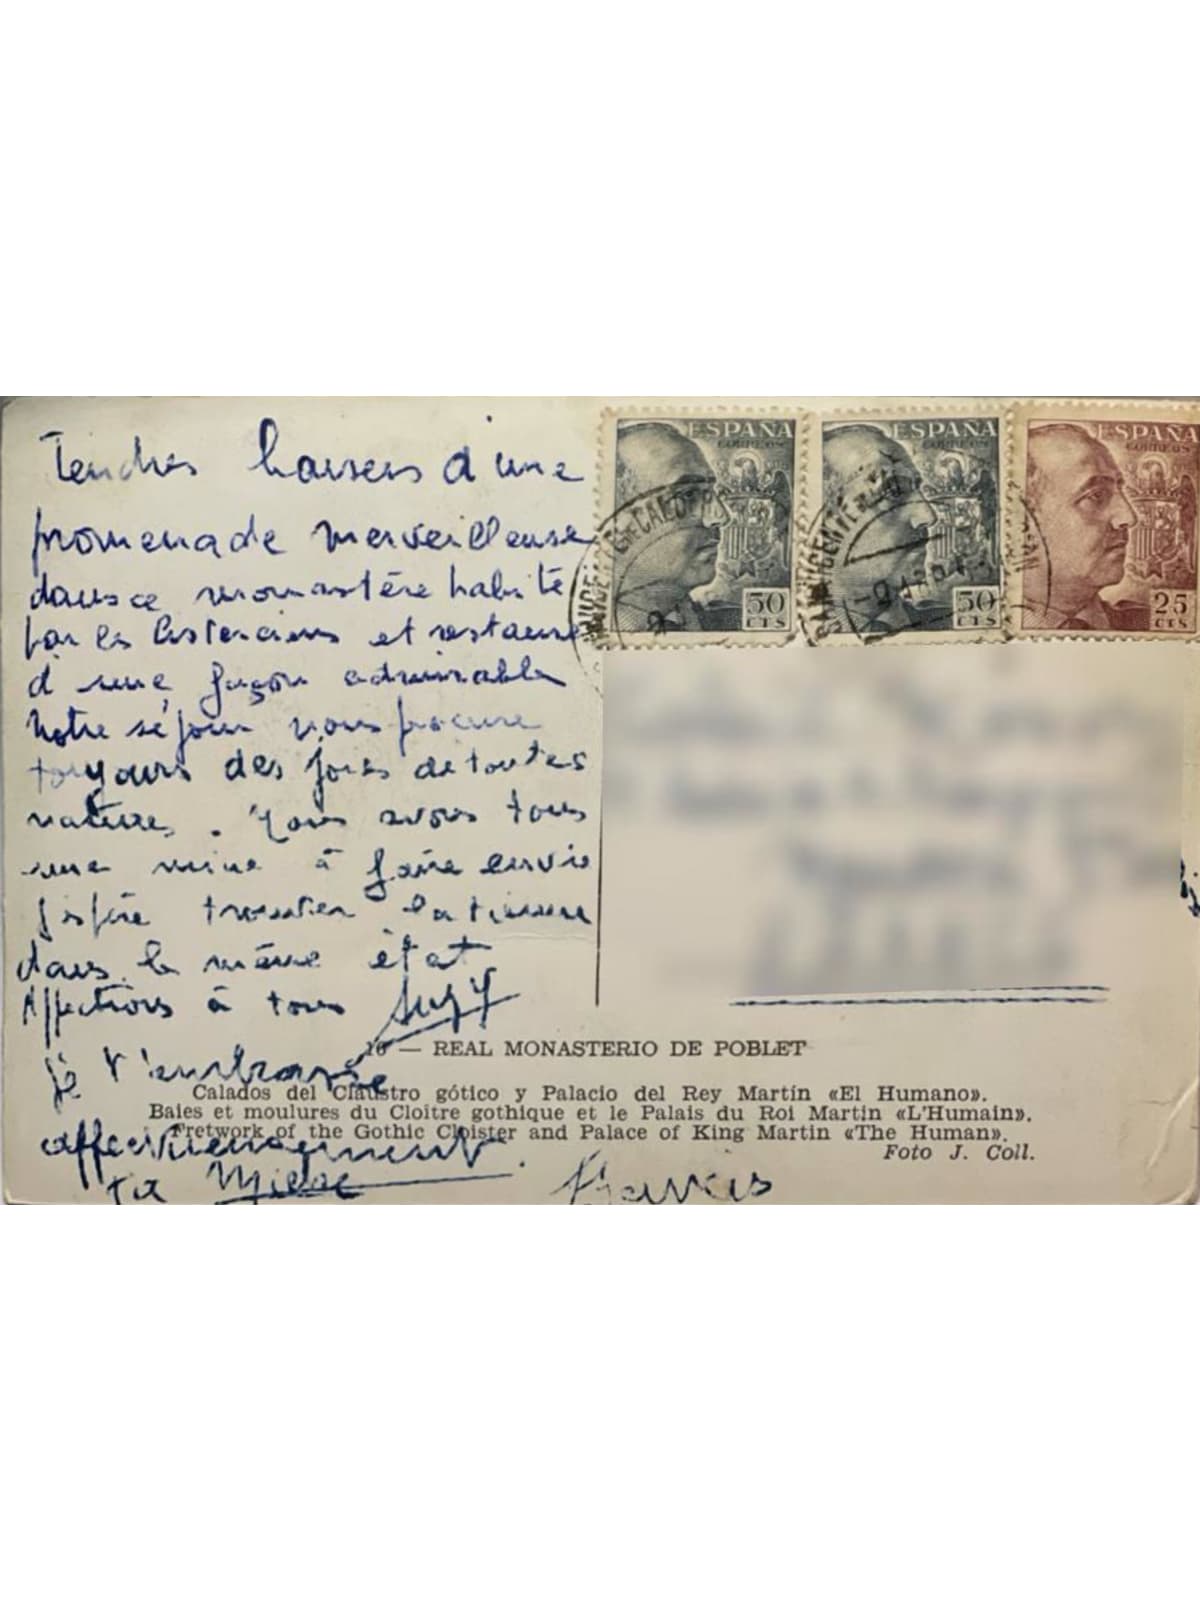 Tendres baisers d'une
promenade merveilleuse
dans ce monastère habité
par les Cisterciens et restauré
d'une façon admirable
Notre séjour nous procure
toujours des joies de toutes
natures. Nous avons tous
une mine à faire envie
J'espère trouver la tienne
dans le même état
Affections à tous Suzy
je t'embrasse
affectueusement
ta
ESPAÑA
CORREOS
50
CTS
ESPAÑA
CORREOS
50
CTS
ESPAÑA
CORREOS
25
CTS
10 — REAL MONASTERIO DE POBLET
Calados del Claustro gótico y Palacio del Rey Martín «El Humano».
Baies et moulures du Cloître gothique et le Palais du Roi Martin «L'Humain».
Fretwork of the Gothic Cloister and Palace of King Martin «The Human».
Foto J. Coll.